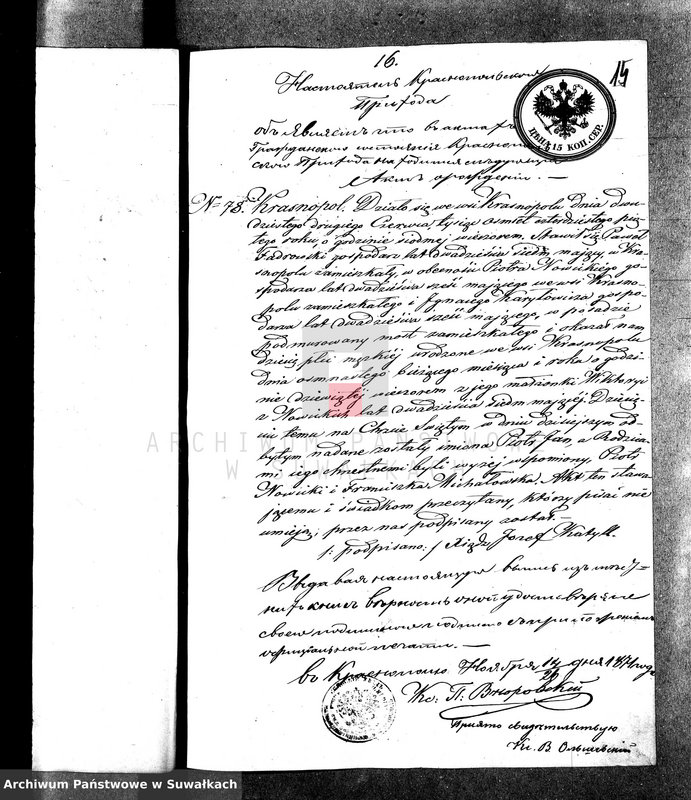 16.
15
Настоятель Краснопольскаго
Прихода
ЦѢНА 15 КОП. СЕР.
объявляетъ что въ актахъ
Гражданскаго состоянія Краснополь-
скаго Прихода находится слѣдующій
Актъ о рожденіи. —
№ 78. Krasnopol. Działo się we wsi Krasnopolu dnia dwu-
dziestego drugiego Czerwca, tysiąc osmset szterdziestego pią-
tego roku, o godzinie siodmej wieczorem. Stawił się Paweł
gospodarz lat dwadzieścia siedm mający, w Kra-
snopolu zamieszkały, w obecności Piotra Nowickiego go-
spodarza lat dwadzieścia sześć mającego we wsi Krasno-
polu zamieszkałego i Ignacego Karyłowicza gospo-
darza lat dwadzieścia sześć mającego, w posadzie
podmurowany most zamieszkałego i okazał nam
dziecię płci męzkiej urodzone we wsi Krasnopolu
dnia osmnastego bieżącego miesiąca i roku o godzi-
nie dziewiątej wieczorem z jego małżonki Wiktoryi
z Nowickich lat dwadzieścia siedm mającej. Dziecię-
ciu temu na Chrzcie Świętym w dniu dzisiejszym od-
bytym nadane zostały imiona Piotr Jan, a Rodzica-
mi jego chrzestnemi byli wyżej wspomiony, Piotr
Nowicki i Franciszka Michałowska. Akt ten stawa-
jącemu i świadkom przeczytany, którzy pisać nie
umieją; przez nas podpisany został. —
/: podpisano: / Xiądz Jozef Katyll.
Выдавая настоящую выпись изъ
книгъ вѣрность оной удостовѣряю
своею подписью и съ приложеніемъ
оффиціальной печати. —
въ Краснополю Ноября 14/26 дня 1871 года
Кс. П. Вноровскій
Кс. В Ольшевскій
ARCHIWUM PAŃSTWOWE
W SUWAŁKACH
Archiwum Państwowe w Suwałkach